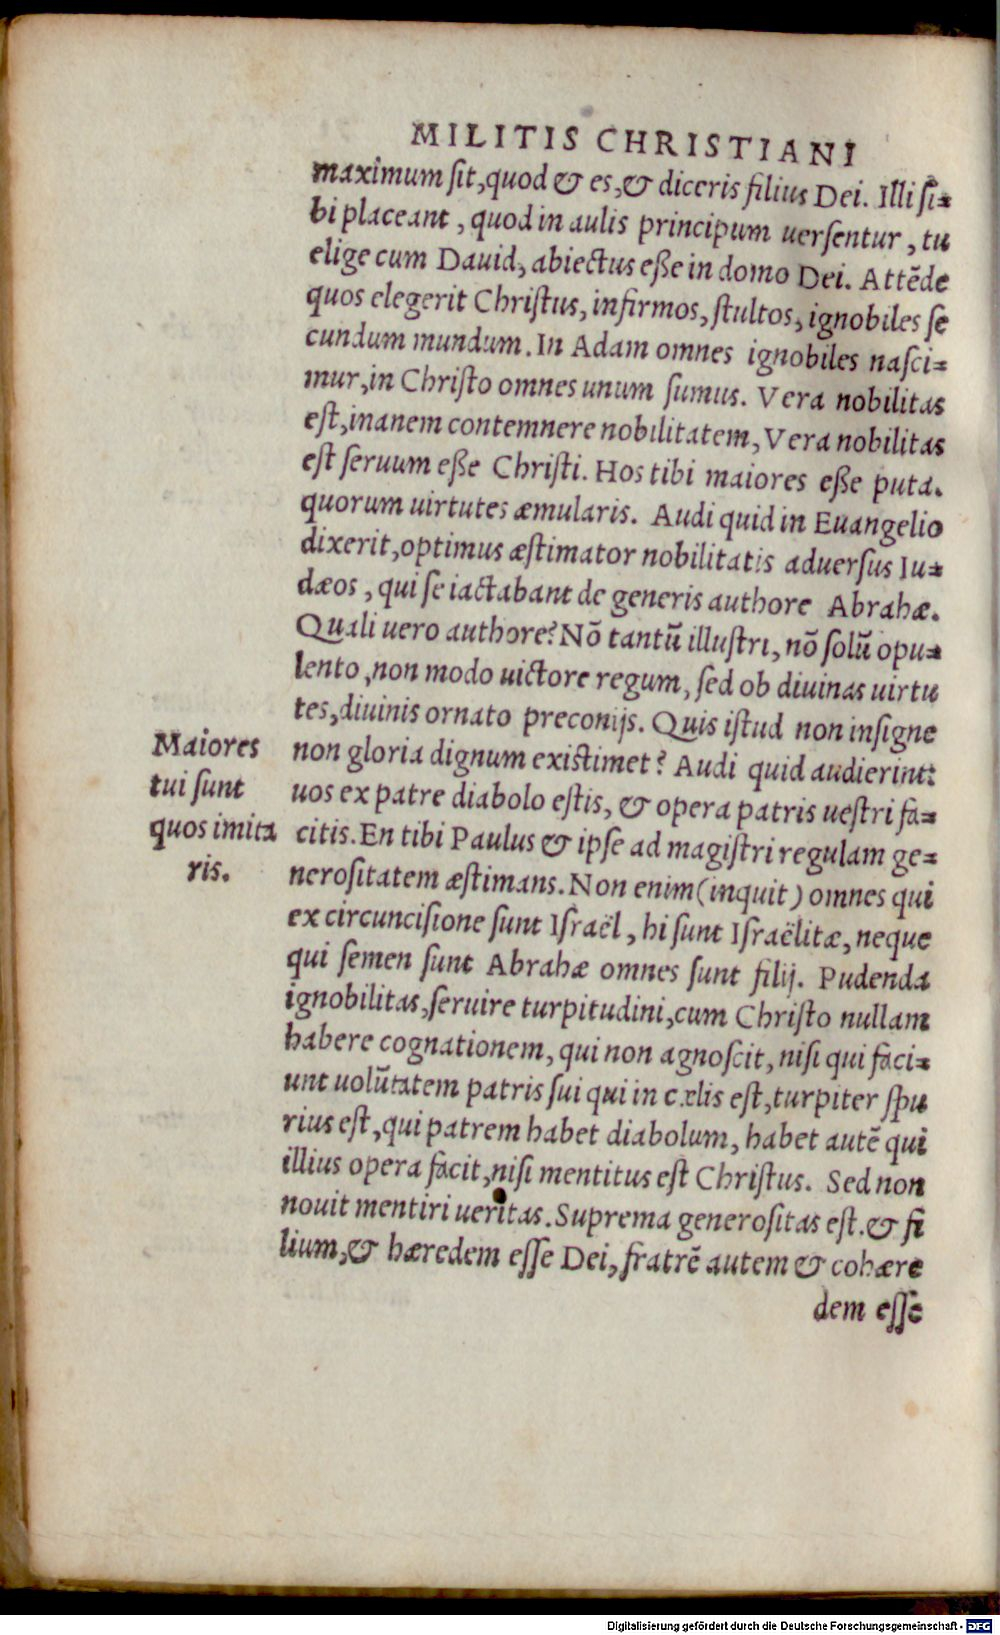 MILITIS CHRISTIANI
maximum ſit,quod & es,& diceris filius Dei. Illi ſi=
bi placeant, quod in aulis principum uerſentur, tu
elige cum Dauid, abiectus eße in domo Dei. Attẽde
quos elegerit Chriſtus, infirmos, ſtultos, ignobiles ſe
cundum mundum. In Adam omnes ignobiles naſci=
mur,in Chriſto omnes unum ſumus. Vera nobilitas
eſt,inanem contemnere nobilitatem, Vera nobilitas
eſt ſeruum eße Chriſti. Hos tibi maiores eße puta.
quorum uirtutes æmularis. Audi quid in Euangelio
dixerit,optimus æſtimator nobilitatis aduerſus Iu=
dæos, qui ſe iactabant de generis authore Abrahæ.
Quali uero authore? Nõ tantũ illuſtri, nõ ſolũ opu=
lento,non modo uictore regum, ſed ob diuinas uirtu
tes,diuinis ornato preconijs. Quis iſtud non inſigne
non gloria dignum existimet? Audi quid audierint:
uos ex patre diabolo eſtis, & opera patris ueſtri fa=
citis. En tibi Paulus & ipſe ad magiſtri regulam ge=
neroſitatem æſtimans. Non enim (inquit) omnes qui
ex circunciſione ſunt Iſraël, hi ſunt Iſraëlitæ, neque
qui ſemen ſunt Abrahæ omnes ſunt filij. Pudenda
ignobilitas,ſeruire turpitudini,cum Chriſto nullam
habere cognationem, qui non agnoſcit, niſi qui faci=
unt uolũtatem patris ſui qui in cælis eſt,turpiter ſpu
rius eſt,qui patrem habet diabolum, habet autẽ qui
illius opera facit,niſi mentitus eſt Chriſtus. Sed non
nouit mentiri ueritas. Suprema generoſitas eſt.& fi
lium,& hæredem eſſe Dei, fratrẽ autem & cohære
dem eſſe
Maiores
tui ſunt
quos imita
ris.
Digitalisierung gefördert durch die Deutsche Forschungsgemeinschaft - DFG